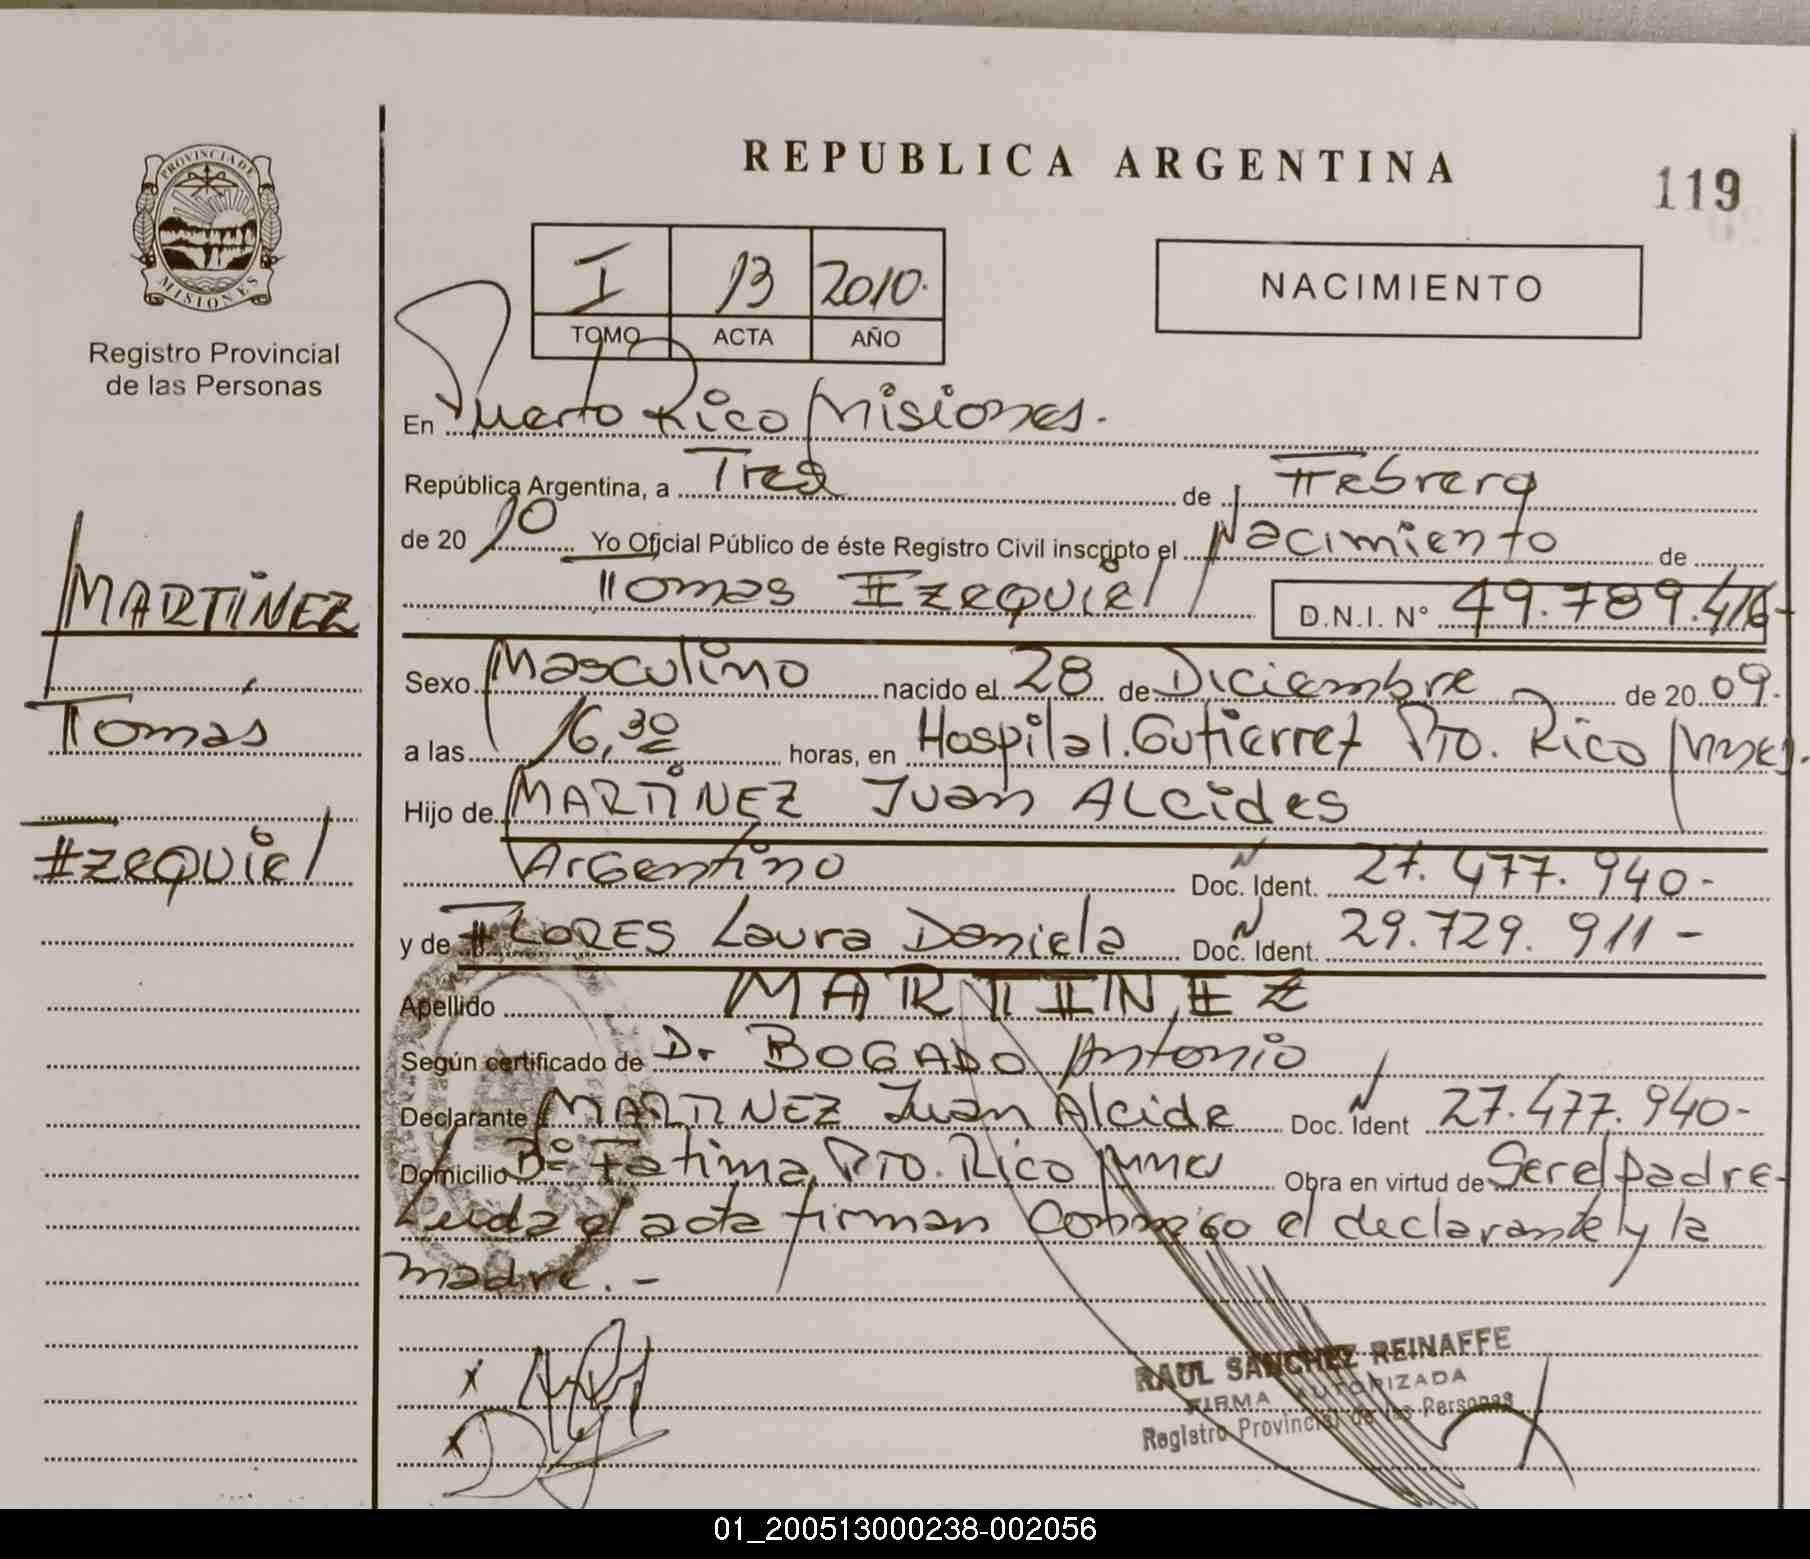 REPUBLICA ARGENTINA
119
PROVINCIA DE
MISIONES
Registro Provincial
de las Personas
I 13 2010.
TOMO ACTA AÑO
NACIMIENTO
En Puerto Rico Misiones.
República Argentina, a Tres de Febrero
de 20 10 Yo Oficial Público de éste Registro Civil inscripto el Nacimiento de
Tomas Ezequiel D.N.I. Nº 49.789.416-
MARTINEZ
Tomás
Ezequiel
Sexo Masculino nacido el 28 de Diciembre de 20 09.
a las 16,30 horas, en Hospital. Gutierrez Pto. Rico Mnes.
Hijo de MARTINEZ Juan ALcides
Argentino Doc. Ident. 27.477.940-
y de FLORES Laura Daniela Doc. Ident. 29.729.911-
Apellido MARTINEZ
Según certificado de Dr BOGADO Antonio
Declarante MARTINEZ Juan Alcide Doc. Ident 27.477.940-
Domicilio Bº Fatima Pto. Rico Mnes Obra en virtud de Ser el padre-
Leida el acta firman conmigo el declarante y la
madre.-
RAUL SANCHEZ REINAFFE
FIRMA AUTORIZADA
Registro Provincial de las Personas
01_200513000238-002056